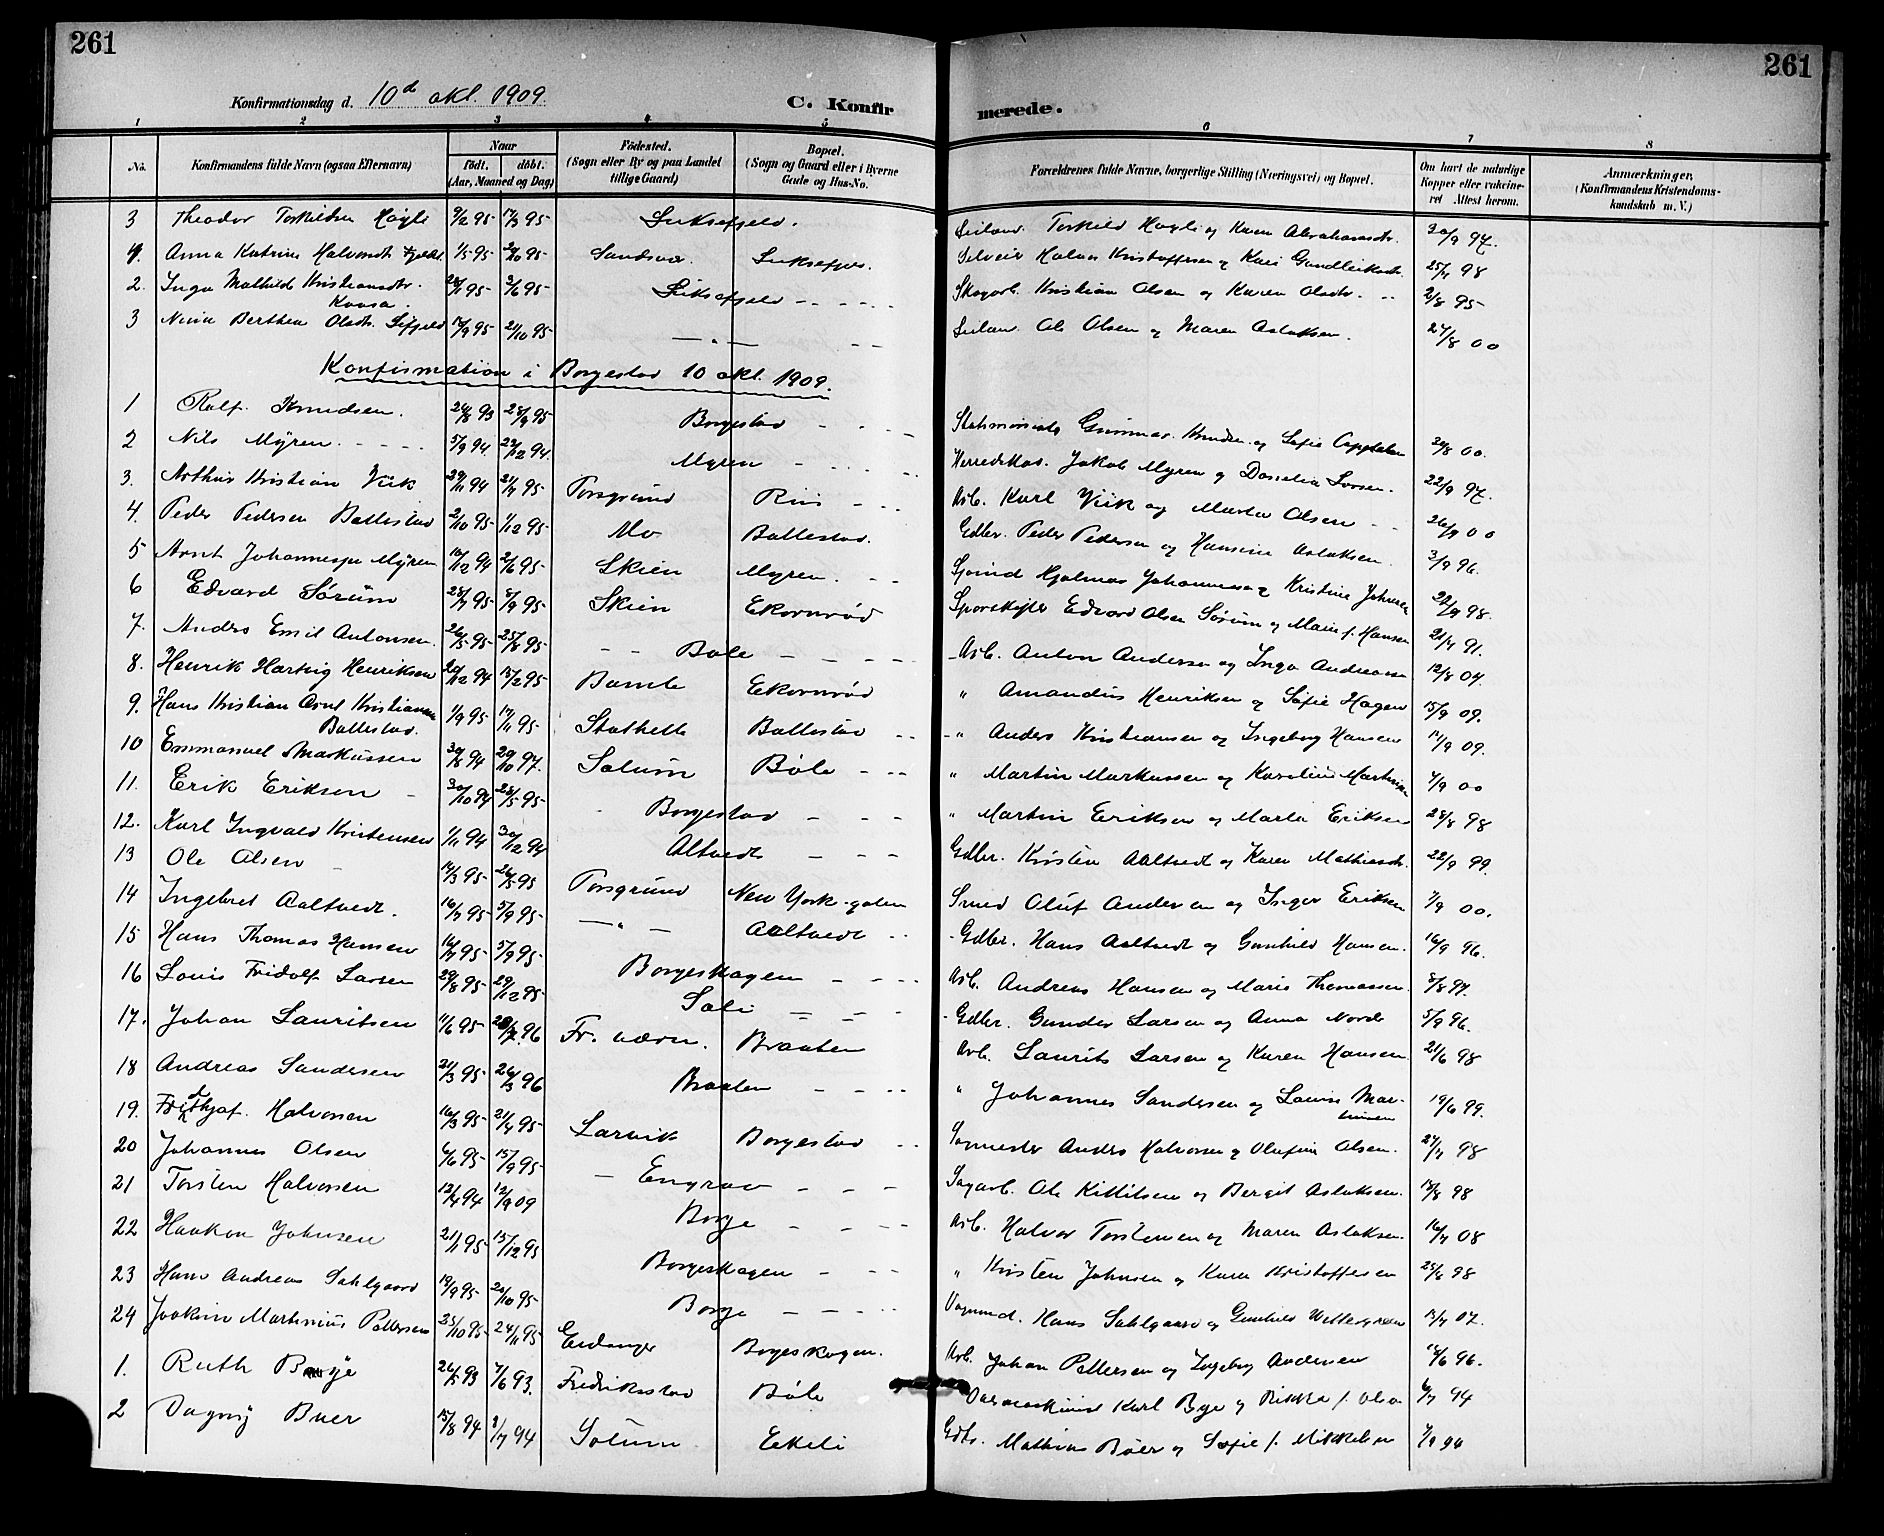 261
261
Konfirmationsdag d. 10d okt. 1909.
C. Konfirmerede.
1 2 3 4 5 6 7 8
No. Konfirmandens fulde Navn (ogsaa Efternavn) Naar født. døbt. (Aar, Maaned og Dag) Fødested. (Sogn eller By og paa Landet tillige Gaard) Bopæl. (Sogn og Gaard eller i Byerne Gade og Hus-No. Forældrenes fulde Navne, borgerlige Stilling (Næringsvei) og Bopæl. Om havt de naturlige Kopper eller vakcineret Attest herom. Anmærkninger, (Konfirmandens Kristendomskundskab m. V.)
3 Theodor Torkildsen Høgli 9/2 95 17/3 95 Luksefjeld. Torkild Høgli og Karen Abrahamsdr. 30/9 97.
4. Anna Katrine Halvorsdr. 1/5 95 Sandsvær. Luksefjeld. Selveier Halvor Kristoffersen og Kari Gundleiksdr. 25/7 98
2. Inga Mathilde Kristiansdtr. Kaasa. 3/6 95 Luksefjeld Skogarb. Kristian Olsen og Karen Olsdtr. 2/8 95
3 Berthea Olsdtr. 17/9 95 21/10 95 — " — Ole Olsen og Maren Aslaksen. 27/8 00
Konfirmation i Borgestad 10 okt. 1909.
1 Rolf Knudsen. 26/8 93 28/9 95 Borgestad Statsminister Gunnar Knudsen og Sofie Cappelen 00.
2 Nils Myren 5/9 94 22/12 94. Myren Jakob Myren og Larsen. 22/9 97.
3. Arthur Kristian Viik 29/11 94 21/7 95 Porsgrund Riis Arb. Karl Viik og Marta Olsen 26/9 00
4. Peder Pedersen Ballestad 2/10 95 1/12 95 Mo Ballestad. Gdbr. Peder Pedersen og Hansine Aslaksen. 3/9 96.
5 Arnt Johannessen Myren 16/12 94 2/6 95 Skien Myren. Hjalmar Johannessen og Kristine Johnsen 22/9 98.
6 Edvard Sørum 28/7 95 8/9 95 Skien Ekornrød Sporskifter Edvard Olsen Sørum og Marie f. Hansen 21/7 91.
7. Anders Emil Antonsen. 26/5 95 25/8 95 Bøle Arb. Anton Andersen og Inga Andreasen 12/8 07.
8. Henrik Hartvig Henriksen 20/12 94 17/2 95 Bamle Ekornrød " Amandus Henriksen og Sofie Hagen 15/9 09.
9. Hans Kristian Arnt Kristiansen Ballestad. 1/9 95 17/11 95 Stathelle Ballestad " Anders Kristiansen og Ingeborg Hansen 11/9 09.
10 Emmanuel Markussen 94 20/10 97. Solum Bøle " Martin Markussen og Karoline Martinsen 7/9 00
11. Erik Eriksen 30/10 94 26/5 95 Borgestad " Martin Eriksen og Marta Eriksen 28/8 98
12. Karl Ingvald Kristensen 1/11 94 30/12 94 Altvedt Gdbr. Kristen Aaltvedt og Karen Mathiasdr. 22/9 99.
13 Ole Olsen 14/3 95 26/5 95 Porsgrund New York-galen Smed Oluf Andersen og Inger Eriksen 7/9 00.
14 Ingebret Aaltvedt. 16/7 95 5/9 95 — " — Aaltvedt Gdbr. Hans Aaltvedt og Gunhild Hansen. 16/9 96.
15 Hans Thomas Hansen 16/7 95 5/9 95 Borgeskogen Arb. Andreas Hansen og Marie Thomassen. 8/8 97.
16 Louis Fridolf Larsen 29/8 95 29/12 95 Soli Gdbr. Gunder Larsen og Anna Norde 5/9 96.
17. Johan Lauritsen 11/6 95 96 Fr. værn. Braaten Arb. Laurits Larsen og Karen Hansen 21/6 98
18 Andreas Sandersen 21/3 95 26/3 96 Braaten " Johannes Sandersen og Louise Martinsen 19/6 99.
19. Fritjof Halvorsen 16/3 95 21/4 95 Larvik Borgestad Sagmester Anders Halvorsen og Olufine Olsen. 27/7 98
20 Johannes Olsen 6/6 95 15/9 95 Engrav Sagarb. Ole Kittilsen og Bergit Aslaksen. 18/8 98
21 Torsten Halvorsen 12/4 94 12/9 09 Borge Arb. Halvor Torstensen og Maren Aslaksen. 16/7 08
22 Haakon Johnsen 21/1 95 15/12 95 Borgeskogen " Kristen Johnsen og Karen Kristoffersen 98
23 Hans Andreas Sahlgaard 19/9 95 20/10 95 Borge Hans Sahlgaard og Gunhild Wettergreen 07.
24 Joakim Martinius Pettersen 23/10 95 24/11 95 Eidanger Borgeskogen. Arb. Johan Pettersen og Ingeborg Andersen 96.
1. Ruth Bye 26/5 93 7/6 93. Fredriksstad Bøle Karl Bye og Rikka f. Olsen 6/7 94
2 Dagny Buer 15/8 94 94 Solum Ekeli Gdbr. Mathias Buer og Sofie f. Mikkelsen 94